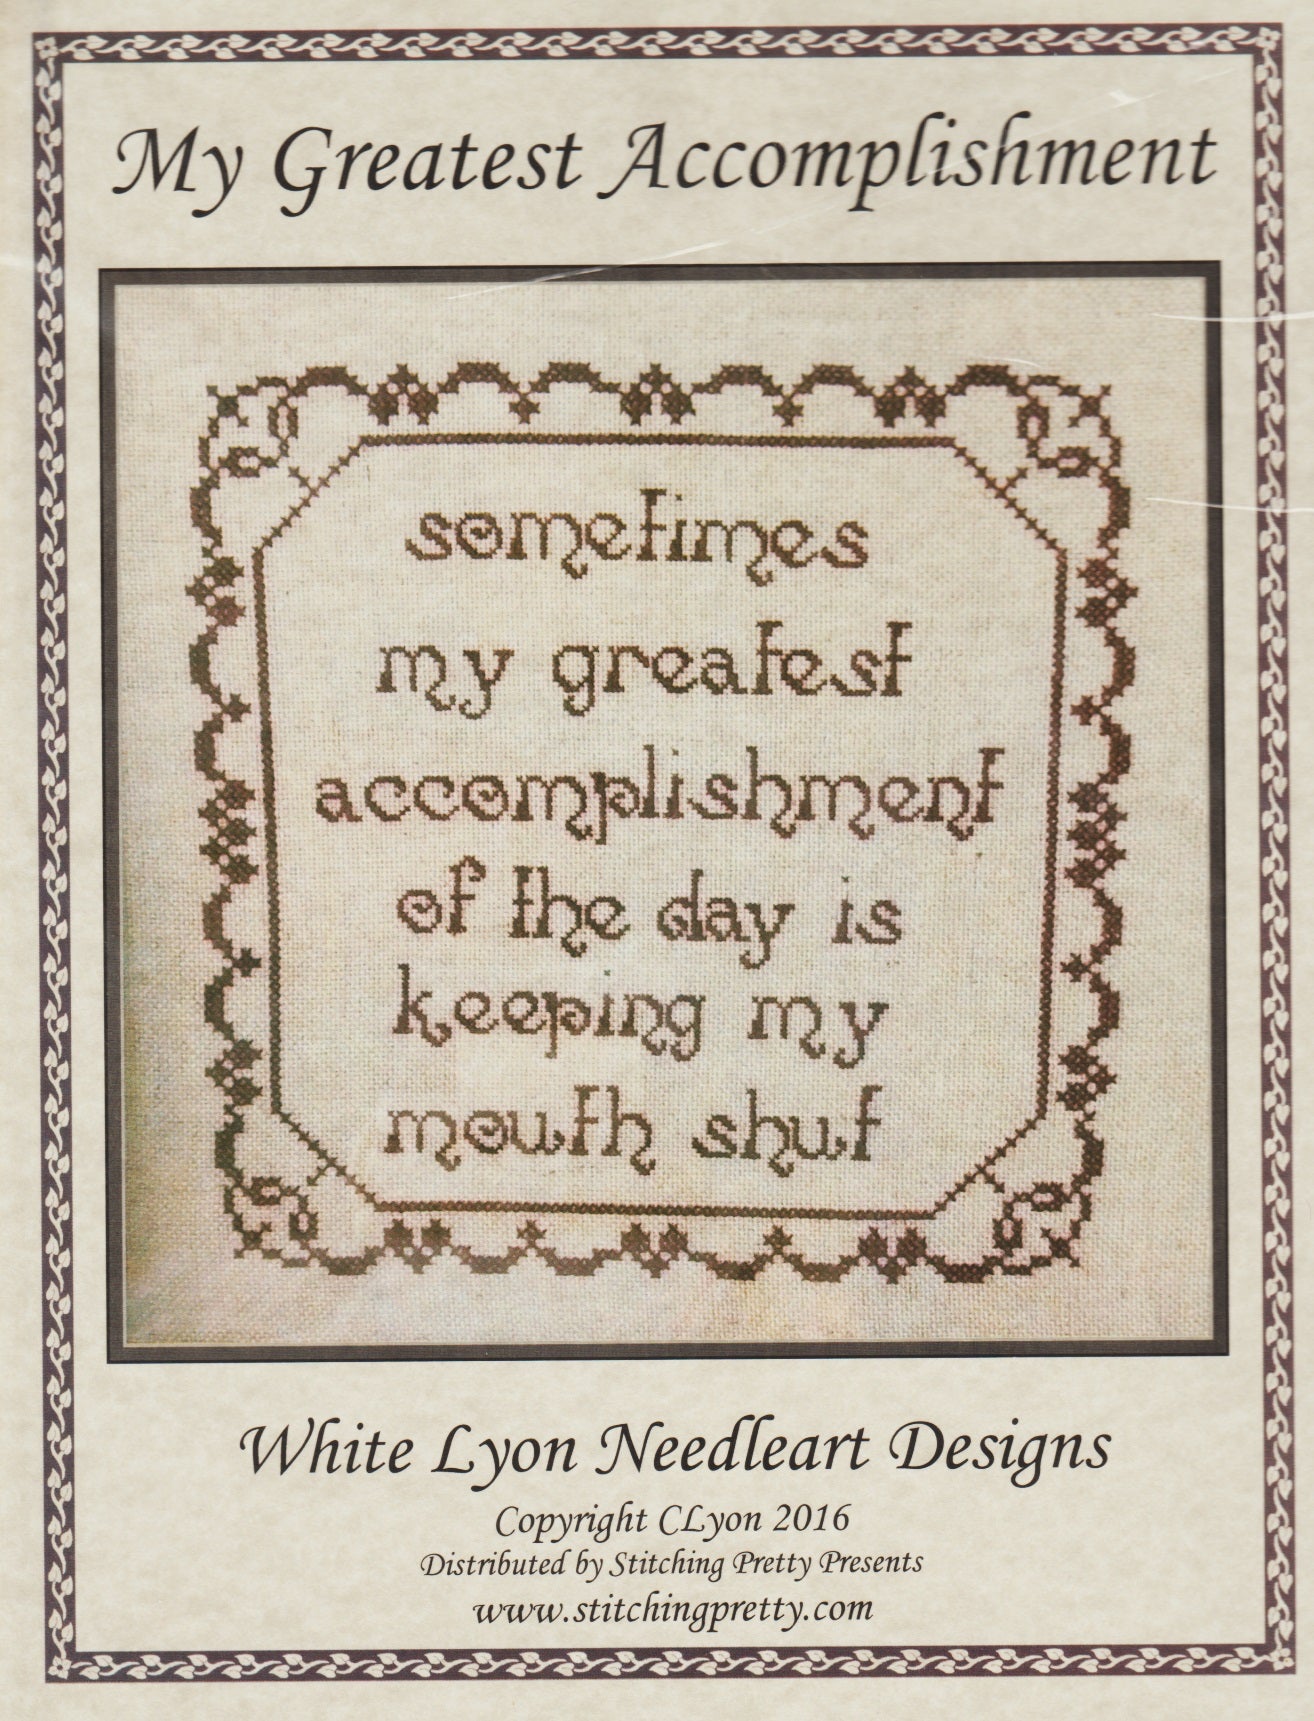 My Greatest Accomplishment
sometimes
my greatest
accomplishment
of the day is
keeping my
mouth shut
White Lyon Needleart Designs
Copyright CLyon 2016
Distributed by Stitching Pretty Presents
www.stitchingpretty.com